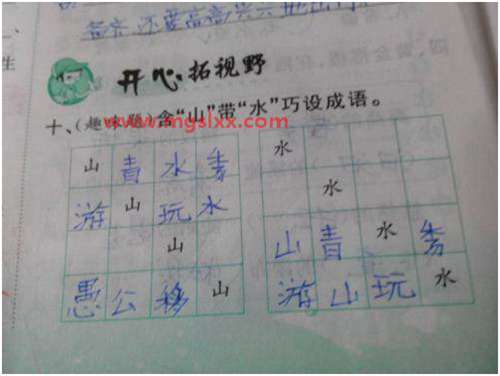 还要高高兴
生
开心拓视野
十、(趣味题)含“山”带“水”巧设成语。
www.mgslxx.com
山青水秀
游山玩水
山
愚公移山
水
水
山青水秀
游山玩水